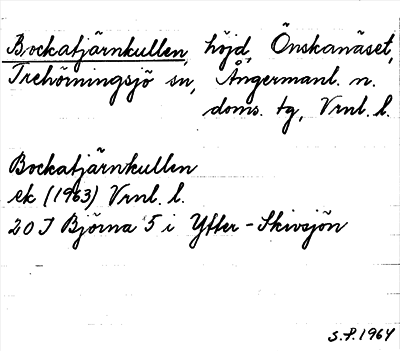 Bockatjärnkullen, höjd, Önskanäset,
Trehörningsjö sn, Ångermanl. n.
doms. tg, Vrnl. l.
Bockatjärnkullen
ek (1963) Vrnl. l.
20 J Björna 5 i Ytter-Skivsjön
S.P. 1964